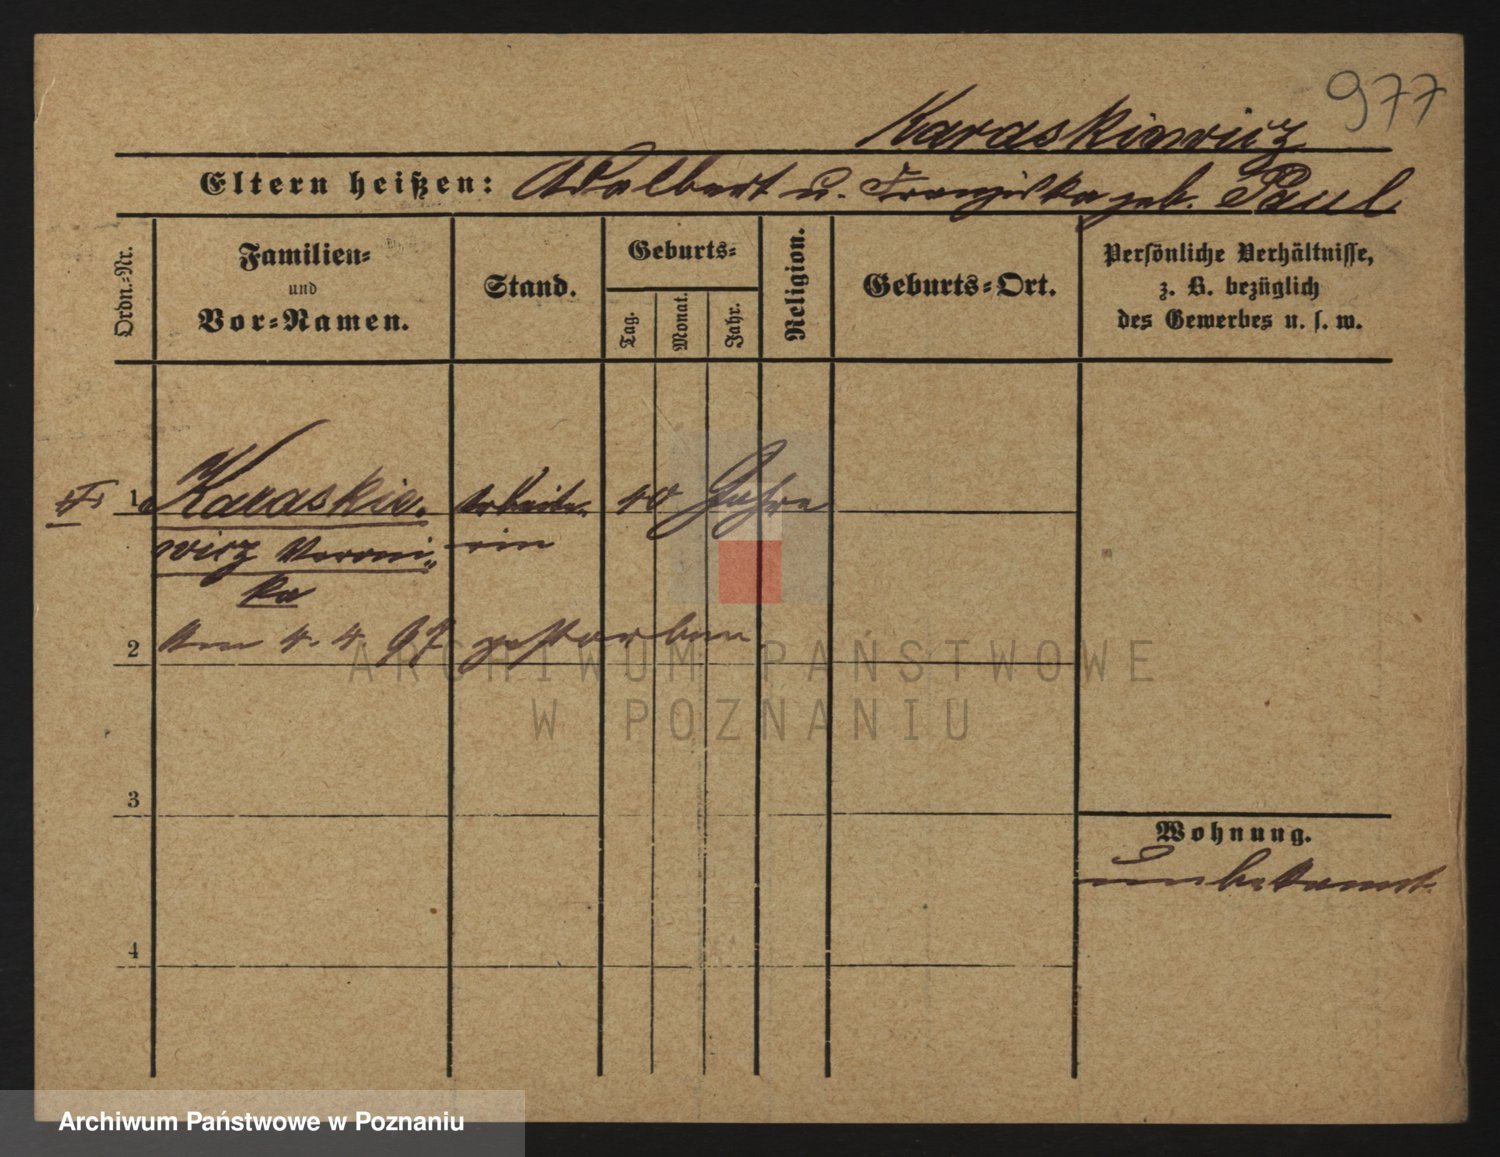 977
Karaskiewicz
Eltern heißen: Adalbert u. Franziska geb. Paul
Ordn.-Nr.
Familien-
und
Vor-Namen.
Stand.
Geburts-
Tag.
Monat.
Jahr.
Religion.
Geburts-Ort.
Persönliche Verhältnisse,
z. B. bezüglich
des Gewerbes u. s. w.
1 Karaskie- Arbeite- 40 Jahre
wicz Veroni- rin
ka
2 Am 4. 4. 97 gestorben
ARCHIWUM PAŃSTWOWE
W POZNANIU
3
Wohnung.
unbekannt
4
Archiwum Państwowe w Poznaniu